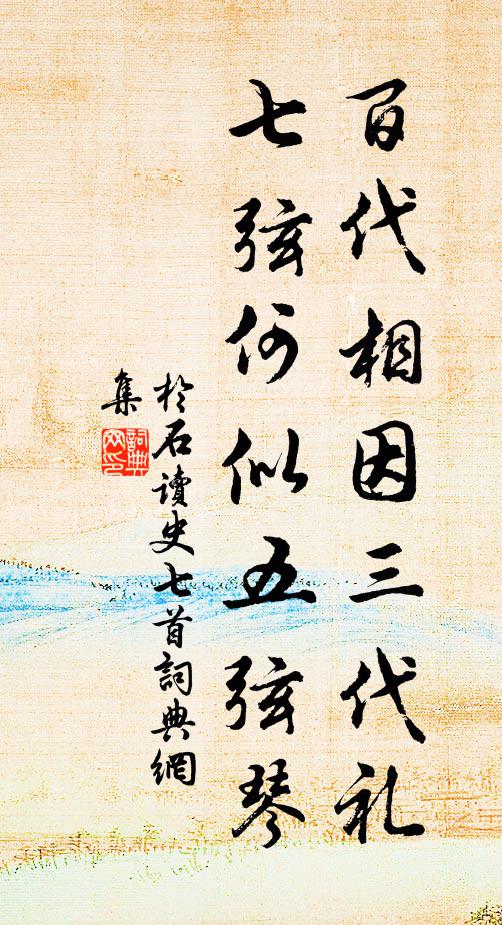 百代相因三代礼
七弦何似五弦琴
於石读史七首詞典網
集
詞典
网印